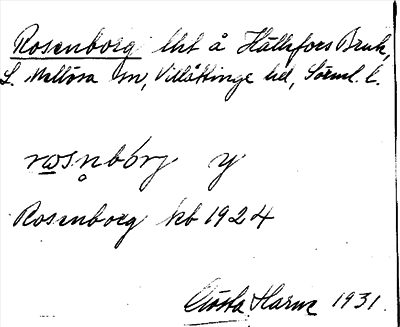 Rosenborg lht å Hällefors Bruk,
L. Mellösa sn, Villåttinge hd, Sörml. l.
rωsn̥bórj y
Rosenborg kb 1924
Gösta Harm 1931.